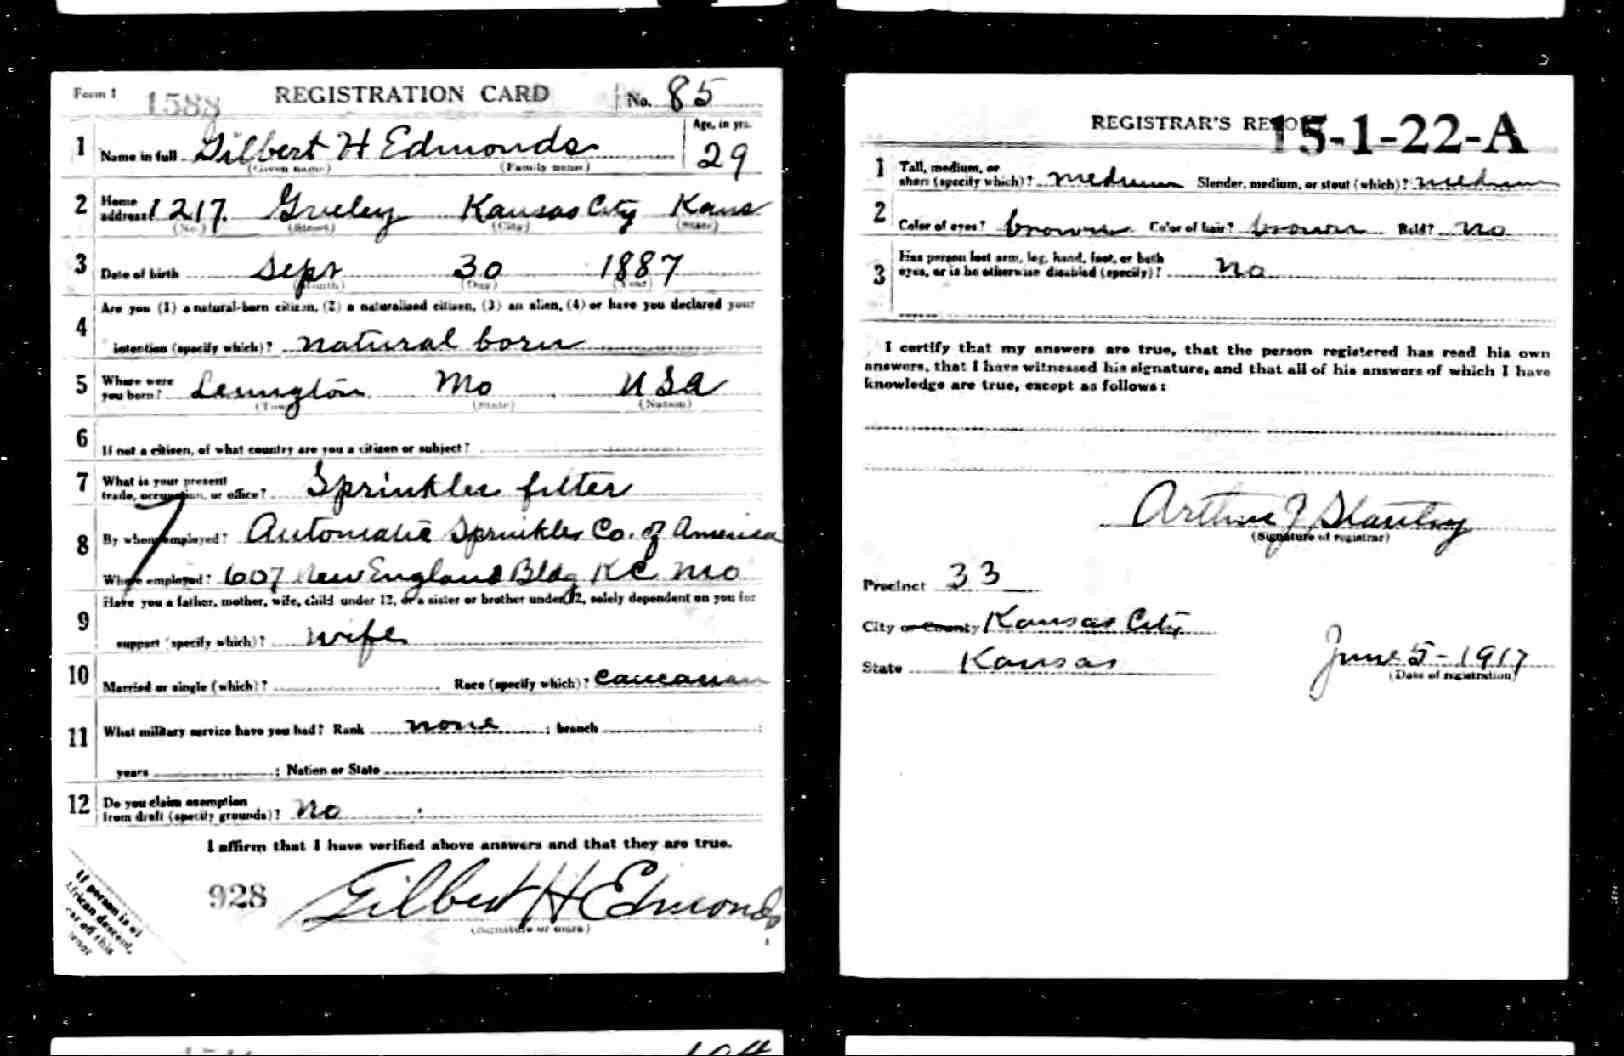 Form 1 1588 REGISTRATION CARD No. 85
1 Name in full Gilbert H Edmonds Age, in yrs. 29
(Given name) (Family name)
2 Home address 1217 Greeley Kansas City Kans
(No.) (Street) (City) (State)
3 Date of birth Sept 30 1887
(Month) (Day) (Year)
Are you (1) a natural-born citizen, (2) a naturalized citizen, (3) an alien, (4) or have you declared your
4 intention (specify which)? natural born
5 Where were you born? Lexington Mo USA
(Town) (State) (Nation)
6 If not a citizen, of what country are you a citizen or subject?
7 What is your present
trade, occupation, or office? Sprinkler fitter
8 By whom employed? Automatic Sprinkler Co. of America
Where employed? 607 New England Bldg K C Mo
9 Have you a father, mother, wife, child under 12, or a sister or brother under 12, solely dependent on you for
support (specify which)? wife
10 Married or single (which)? Race (specify which)? Caucasian
11 What military service have you had? Rank none ; branch ;
years ; Nation or State
12 Do you claim exemption
from draft (specify grounds)? No
I affirm that I have verified above answers and that they are true.
928 Gilbert H Edmonds
(Signature or mark)
If person is of
African descent,
tear off this
corner
REGISTRAR'S REPORT 15-1-22-A
1 Tall, medium, or
short (specify which)? medium Slender, medium, or stout (which)? medium
2 Color of eyes? brown Color of hair? brown Bald? No
3 Has person lost arm, leg, hand, foot, or both
eyes, or is he otherwise disabled (specify)? No
I certify that my answers are true, that the person registered has read his own
answers, that I have witnessed his signature, and that all of his answers of which I have
knowledge are true, except as follows:
Arthur J Stanley
(Signature of registrar)
Precinct 33
City or County Kansas City
State Kansas June 5-1917
(Date of registration)